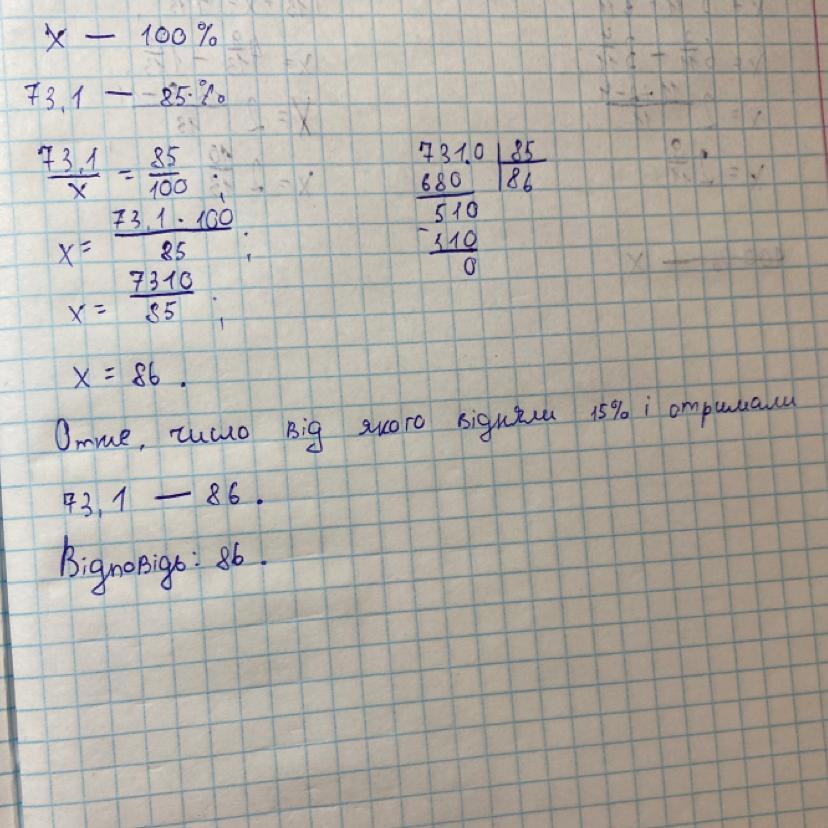 x — 100%
73,1 — 85%
73,1/x = 85/100 ;
x = 73,1 · 100/85 ;
x = 7310/85 ;
x = 86 .
731.0 | 85
680 | 86
510
-510
0
Отже, число від якого відняли 15% і отримали
73,1 — 86 .
Відповідь: 86 .